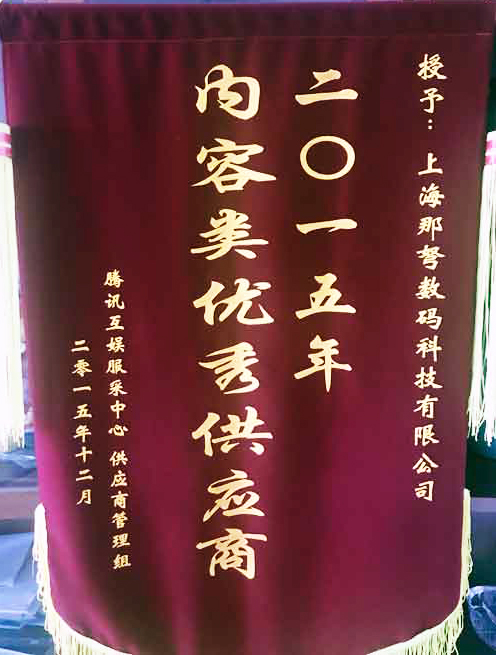 授予：上海那弩数码科技有限公司
二〇一五年
内容类优秀供应商
腾讯互娱服采中心 供应商管理组
二零一五年十二月